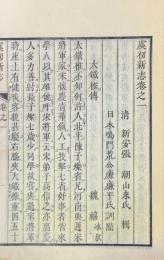 虞初新志卷之一
清 新安張 潮山來氏 輯
日本鳴門荒公廉廉平氏訓點
大鐵椎傳
魏 禧 冰叔
大鐵椎不知何許人北平陳子燦省兄河南與遇宋
將軍家宋懷慶青華鎮人工技擊七省好事者皆來
學人以其雄健呼宋將軍云宋弟子高信之亦懷慶
人多力善射長子燦七歲少同學故嘗與過宋將軍
時座上有健啖客貌甚寢右脅夾大鐵椎重四五十